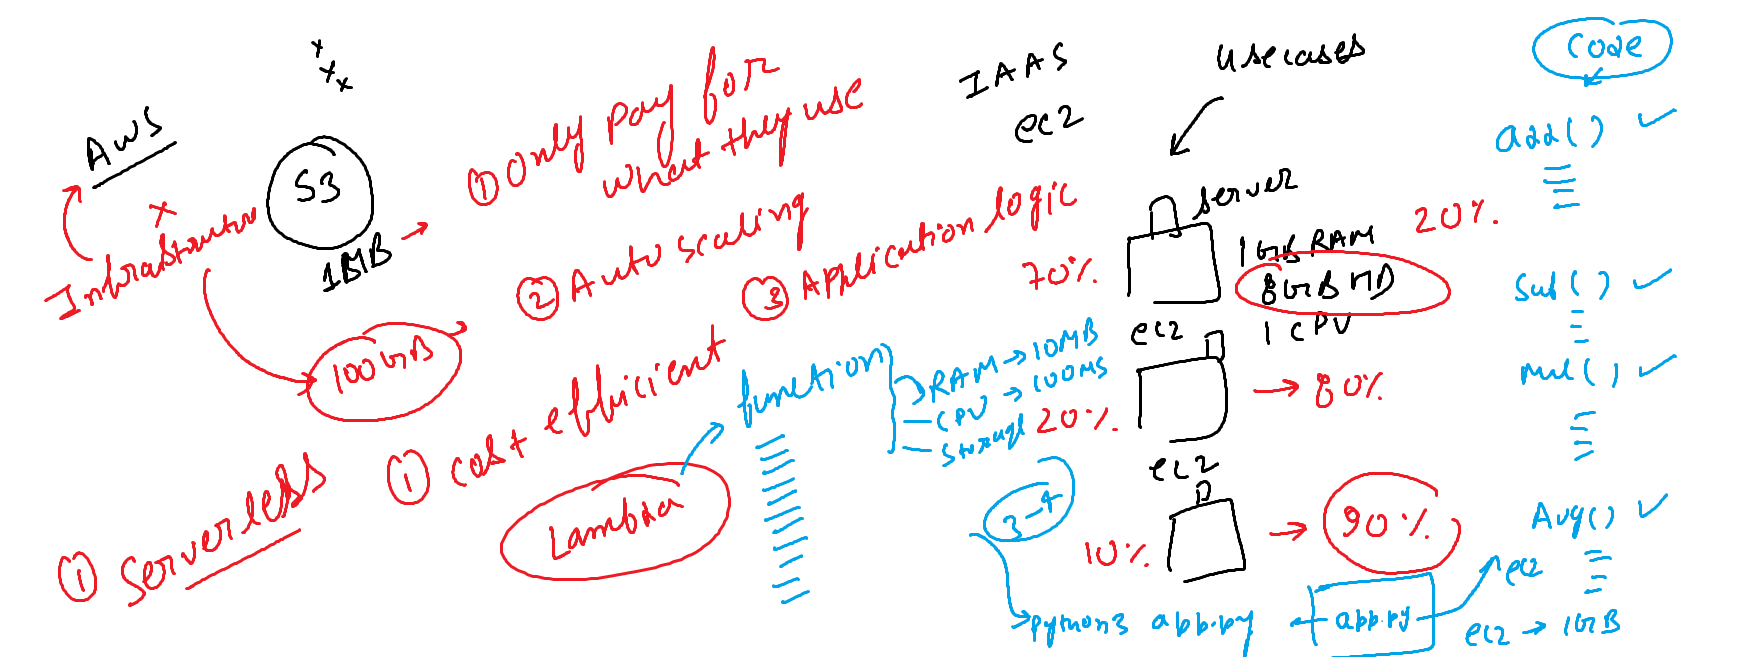 AWS
Infrastructure
S3
1MB
100GB
① Only pay for
what they use
② Auto scaling
③ Application logic
① Cost efficient
① Serverless
Lambda
function
RAM → 10MB
CPU → 100MS
Storage
IAAS
ec2
Usecases
Server
1GB RAM
8GB HD
1 CPU
70%
20%
ec2
20%
→ 80%
ec2
10%
→ 90%
3-4
python3 app.py
app.py
ec2
ec2 → 1GB
Code
add()
Sub()
mul()
Avg()